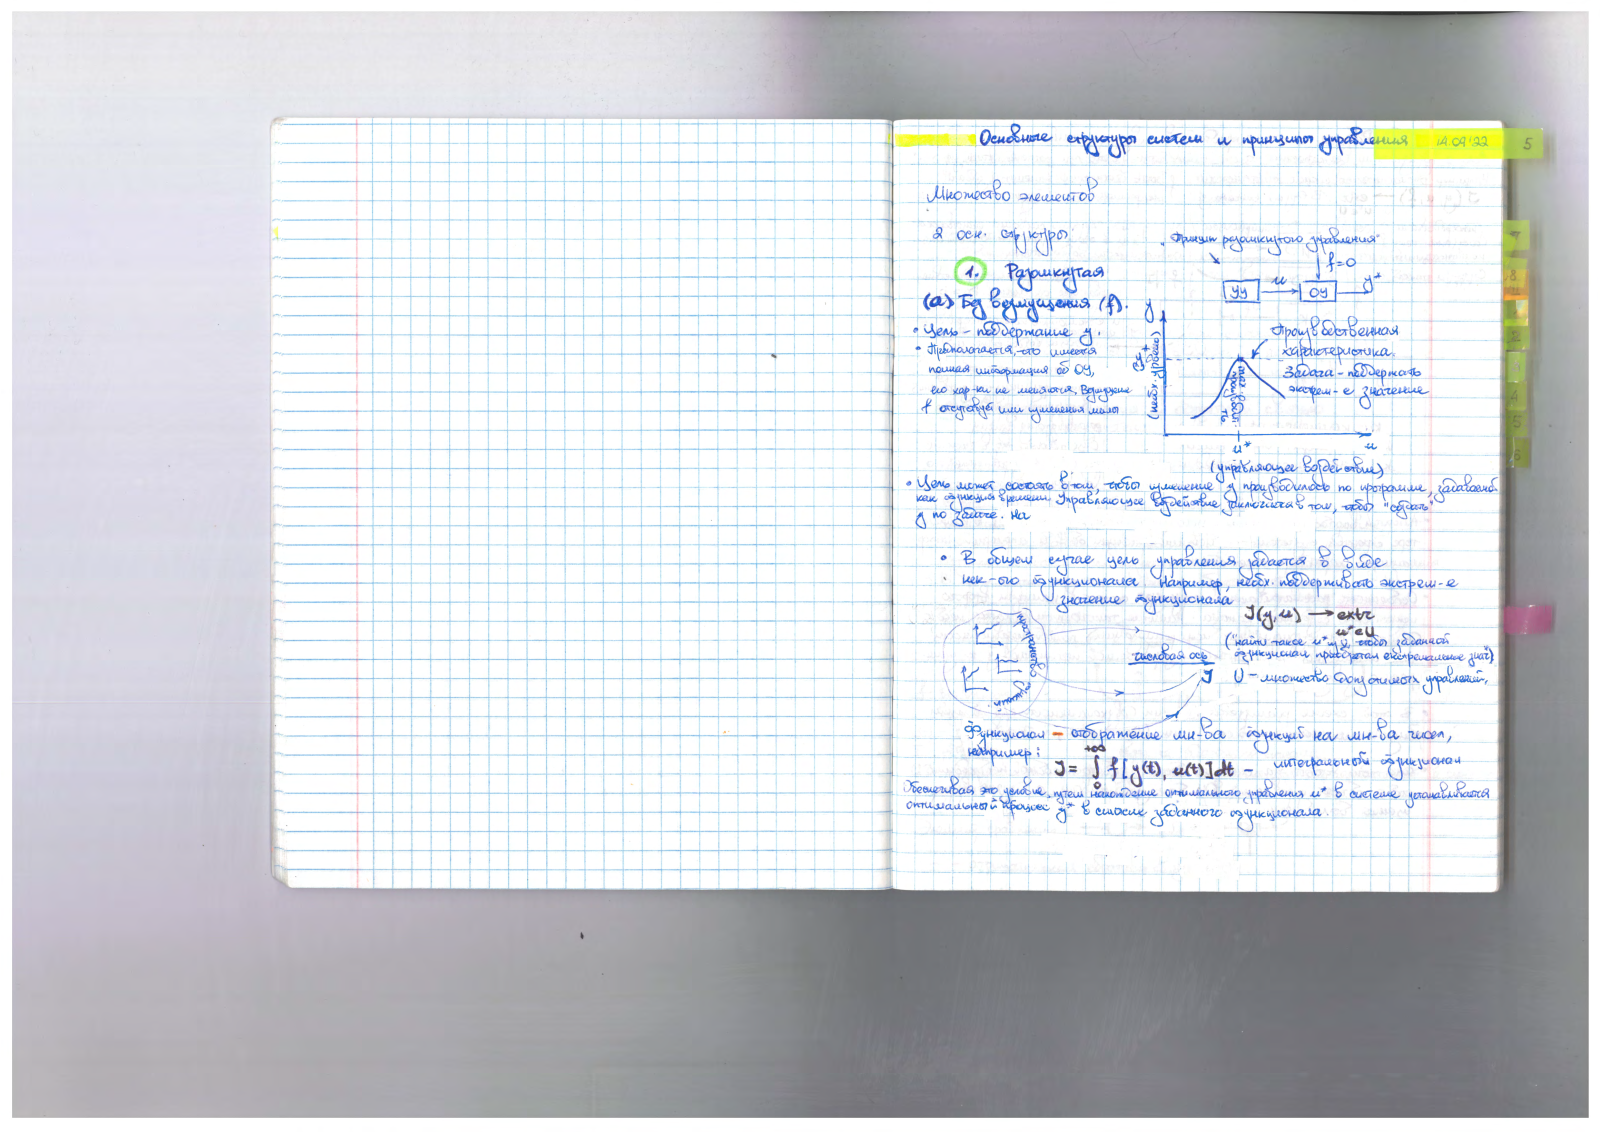 Основные структуры систем и принципы управления 14.09.22 5
Множество элементов
2 осн. структуры:
"Принцип разомкнутого управления"
1. Разомкнутая
f=0
УУ u ОУ y*
(а) Без возмущения (f).
y
• Цель – поддержание y.
• Предполагается, что имеется
полная информация об ОУ,
его хар-ки не меняются. Возмущение
f отсутствует или изменения малы
(необх. уровень)
Производственная
характеристика.
Задача – поддержать
экстрем-е значение
u* u
(управляющее воздействие)
• Цель может состоять в том, чтобы изменение y производилось по программе, задаваемой
как функция времени. Управляющее воздействие заключается в том, чтобы "создать"
y по задаче. На
• В общем случае цель управления задается в виде
нек-ого функционала. Например, необх. поддерживать экстрем-е
значение функционала
J(y,u) → extr
u*∈U
("найти такое u* чтобы заданной
функционал приобретал экстремальное знач)
пространство
функций
числовая ось
J U – множество допустимых управлений.
Функционал – отображение мн-ва функций на мн-ва чисел,
например:
J = ∫₀^{+∞} f[y(t), u(t)]dt – интегральный функционал
Обеспечивая это условие, путем нахождение оптимального управления u* в системе устанавливается
оптимальный процесс y* в смысле заданного функционала.